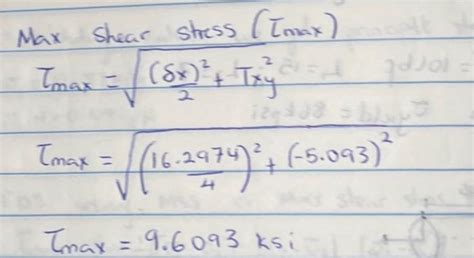 Max Shear stress (τmax)
τmax = √((δx)²/2 + Txy²)
τmax = √((16.2974/4)² + (-5.093)²)
τmax = 9.6093 ksi